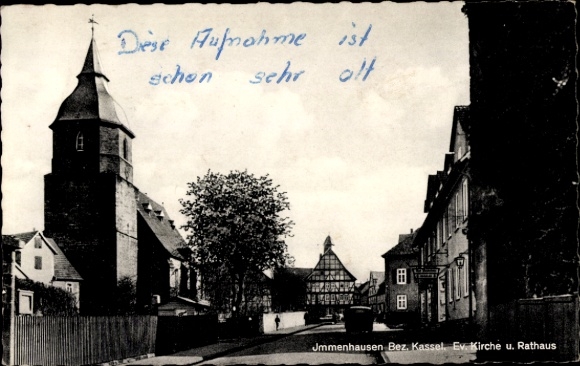 Diese Aufnahme ist
schon sehr alt
Jmmenhausen Bez. Kassel. Ev. Kirche u. Rathaus